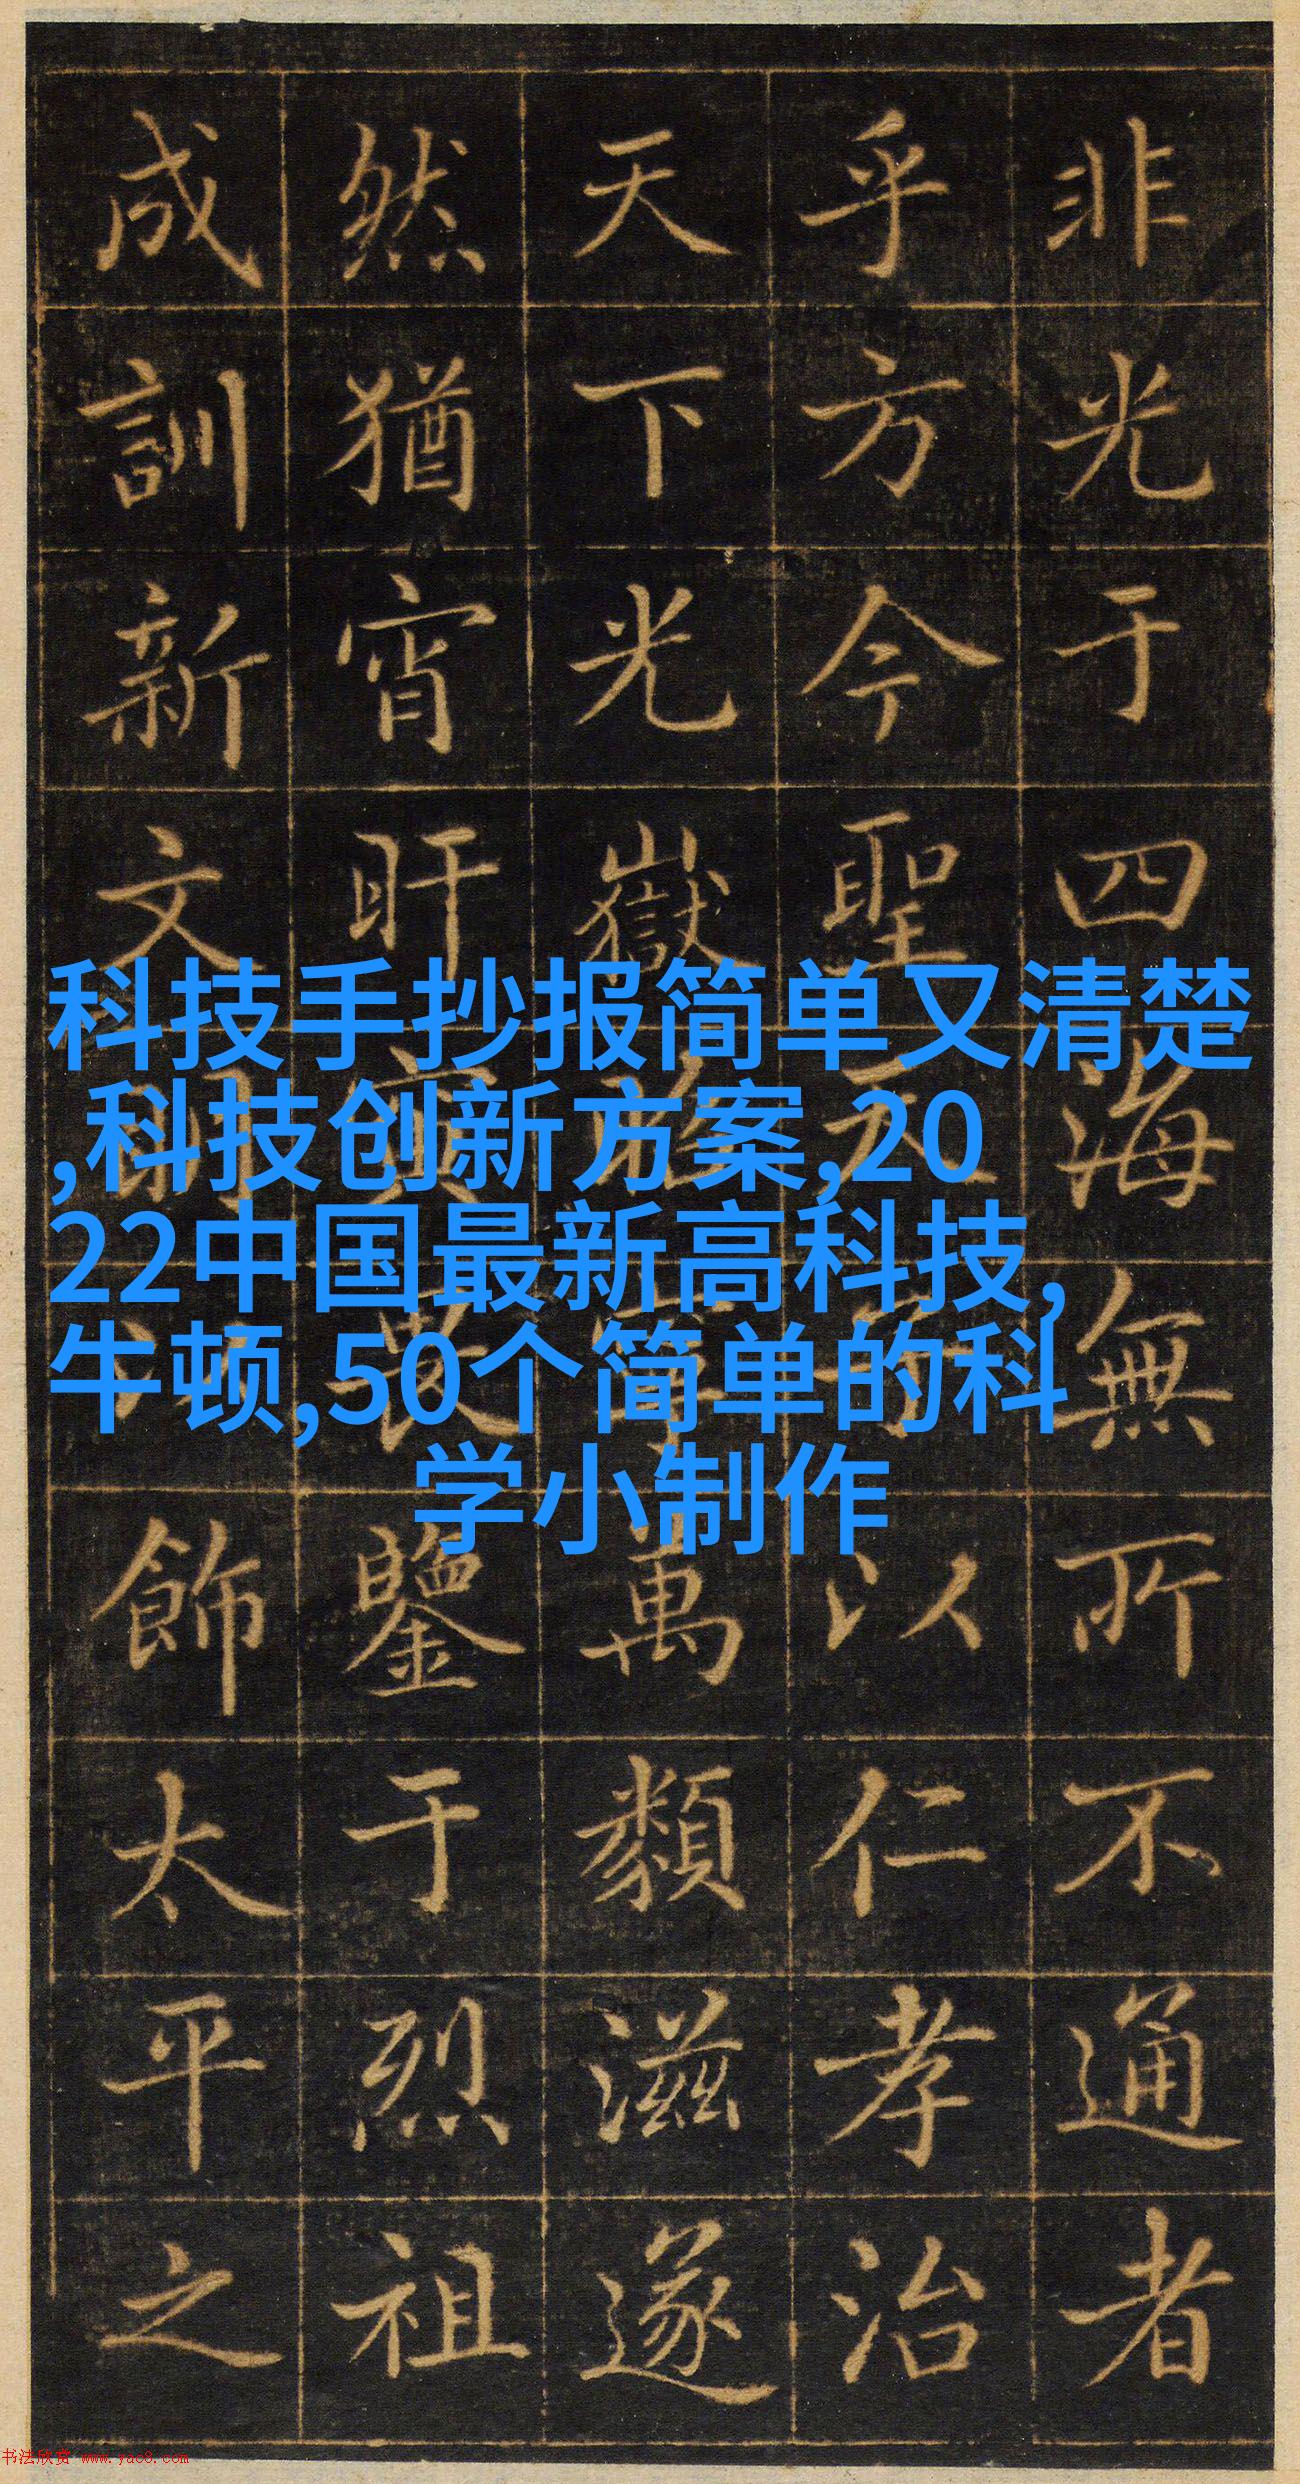 非光于四海無所不通者
乎方今聖天以仁孝治
天下光嶽萬類滋遂
然猶宵旰寅畏鑒于烈祖
成訓新文飾太平之
科技手抄报简单又清楚
,科技创新方案,20
22中国最新高科技,
牛顿,50个简单的科
学小制作
书法欣赏 www.yac8.com